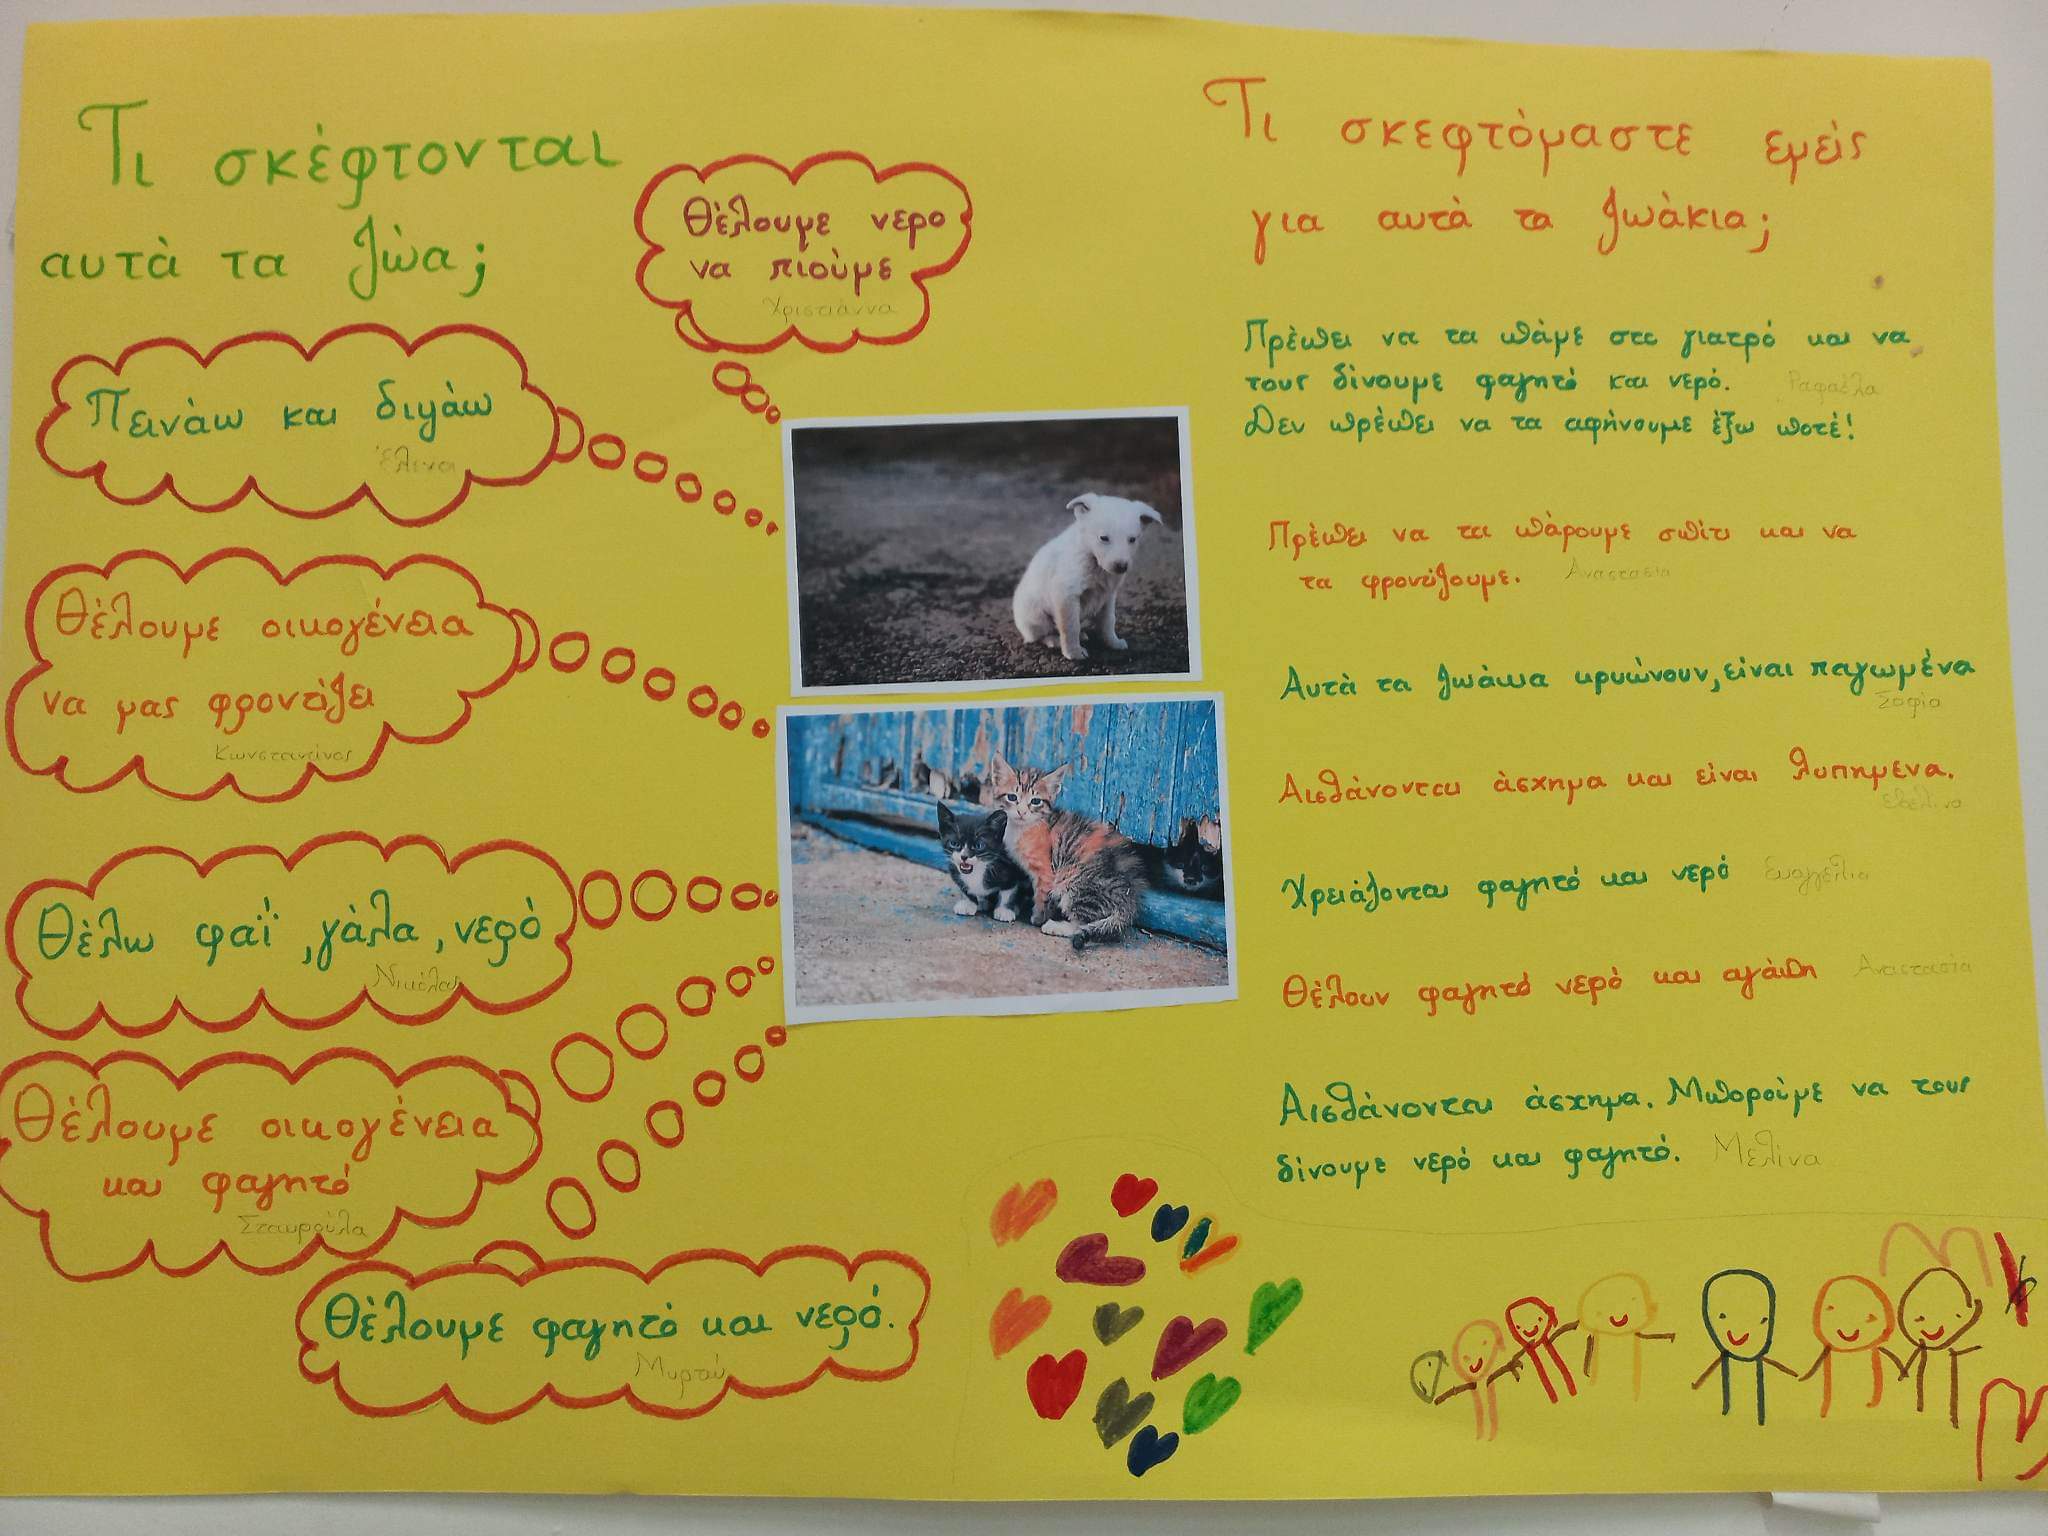 Τι σκέφτονται
αυτά τα ζώα;
Θέλουμε νερο
να πιούμε
Χριστιάννα
Πεινάω και διψάω
Έλενα
Θέλουμε οικογένεια
να μας φροντίζει
Κωνσταντίνος
Θέλω φαΐ, γάλα, νερό
Νικόλας
Θέλουμε οικογένεια
και φαγητό
Σταυρούλα
Θέλουμε φαγητό και νερό.
Μυρτώ
Τι σκεφτόμαστε εμείς
για αυτά τα ζωάκια;
Πρέπει να τα πάμε στο γιατρό και να
τους δίνουμε φαγητό και νερό.
Ραφαέλα
Δεν πρέπει να τα αφήνουμε έξω ποτέ!
Πρέπει να τα πάρουμε σπίτι και να
τα φροντίζουμε. Αναστασία
Αυτά τα ζωάκια κρυώνουν, είναι παγωμένα
Σοφία
Αισθάνονται άσχημα και είναι λυπημένα.
Εβελίνα
Χρειάζονται φαγητό και νερό Ευαγγελία
Θέλουν φαγητό νερό και αγάπη Αναστασία
Αισθάνονται άσχημα. Μπορούμε να τους
δίνουμε νερό και φαγητό. Μελίνα